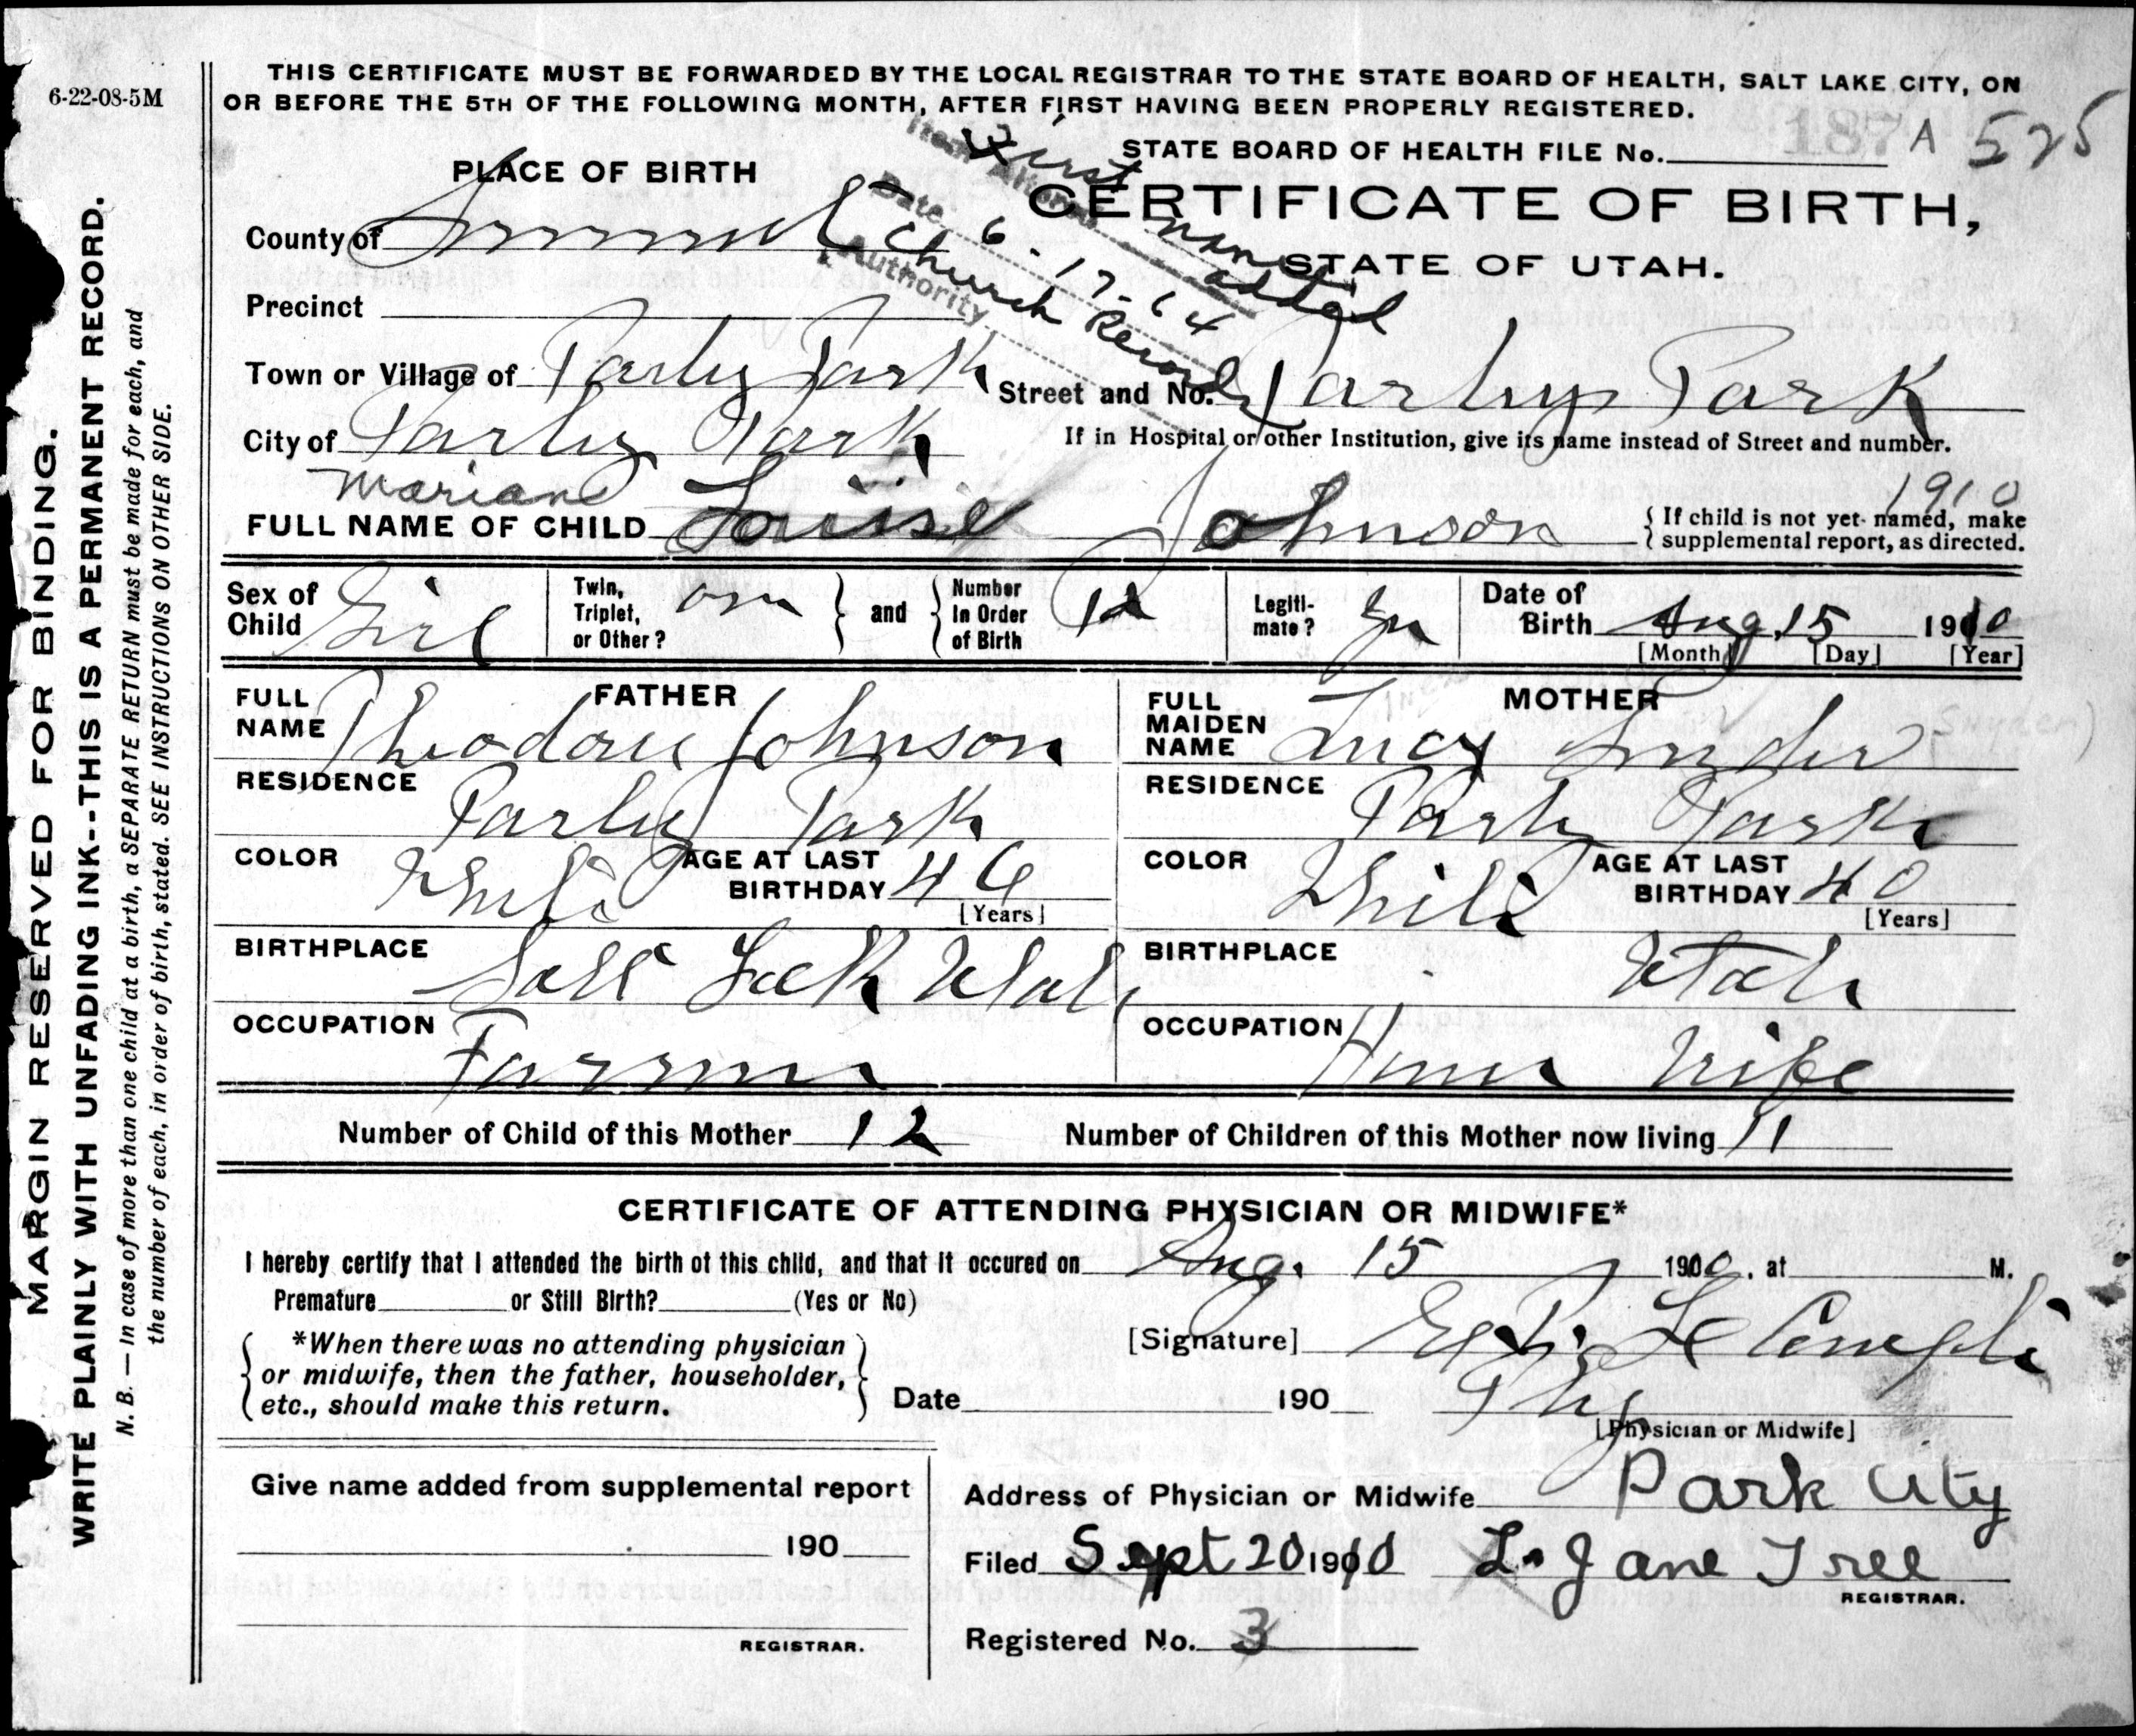 6-22-08-5M
THIS CERTIFICATE MUST BE FORWARDED BY THE LOCAL REGISTRAR TO THE STATE BOARD OF HEALTH, SALT LAKE CITY, ON
OR BEFORE THE 5TH OF THE FOLLOWING MONTH, AFTER FIRST HAVING BEEN PROPERLY REGISTERED.
STATE BOARD OF HEALTH FILE No. 187 A 525
CERTIFICATE OF BIRTH,
STATE OF UTAH.
Item Altered First name added
Date 6-17-64
Authority Church Record
PLACE OF BIRTH
County of Summit
Precinct
Town or Village of Parley Park
Street and No. Parleys Park
City of Parley Park
If in Hospital or other Institution, give its name instead of Street and number.
Mariane
1910
FULL NAME OF CHILD Louise Johnson
{ If child is not yet named, make
supplemental report, as directed.
Sex of Child Girl
Twin, Triplet, or Other? one } and { Number In Order of Birth 12
Legiti-mate? Yes
Date of Birth Aug. 15 1910
[Month] [Day] [Year]
FATHER
FULL NAME Theodore Johnson
RESIDENCE Parley Park
COLOR White
AGE AT LAST BIRTHDAY 46
[Years]
BIRTHPLACE Salt Lak Utah
OCCUPATION Farmer
MOTHER
FULL MAIDEN NAME Lucy Snyder (Snyder)
RESIDENCE Parley Park
COLOR White
AGE AT LAST BIRTHDAY 40
[Years]
BIRTHPLACE Utah
OCCUPATION House Wife
Number of Child of this Mother 12
Number of Children of this Mother now living 11
CERTIFICATE OF ATTENDING PHYSICIAN OR MIDWIFE*
I hereby certify that I attended the birth of this child, and that it occured on Aug. 15 190, at M.
Premature or Still Birth? (Yes or No)
*When there was no attending physician
or midwife, then the father, householder,
etc., should make this return.
[Signature] Le Compte
Date 190 Phy
[Physician or Midwife]
Give name added from supplemental report
190
REGISTRAR.
Address of Physician or Midwife Park City
Filed Sept 20 1910 L. Jane Tree
REGISTRAR.
Registered No. 3
MARGIN RESERVED FOR BINDING.
WRITE PLAINLY WITH UNFADING INK--THIS IS A PERMANENT RECORD.
N. B. — In case of more than one child at a birth, a SEPARATE RETURN must be made for each, and
the number of each, in order of birth, stated. SEE INSTRUCTIONS ON OTHER SIDE.